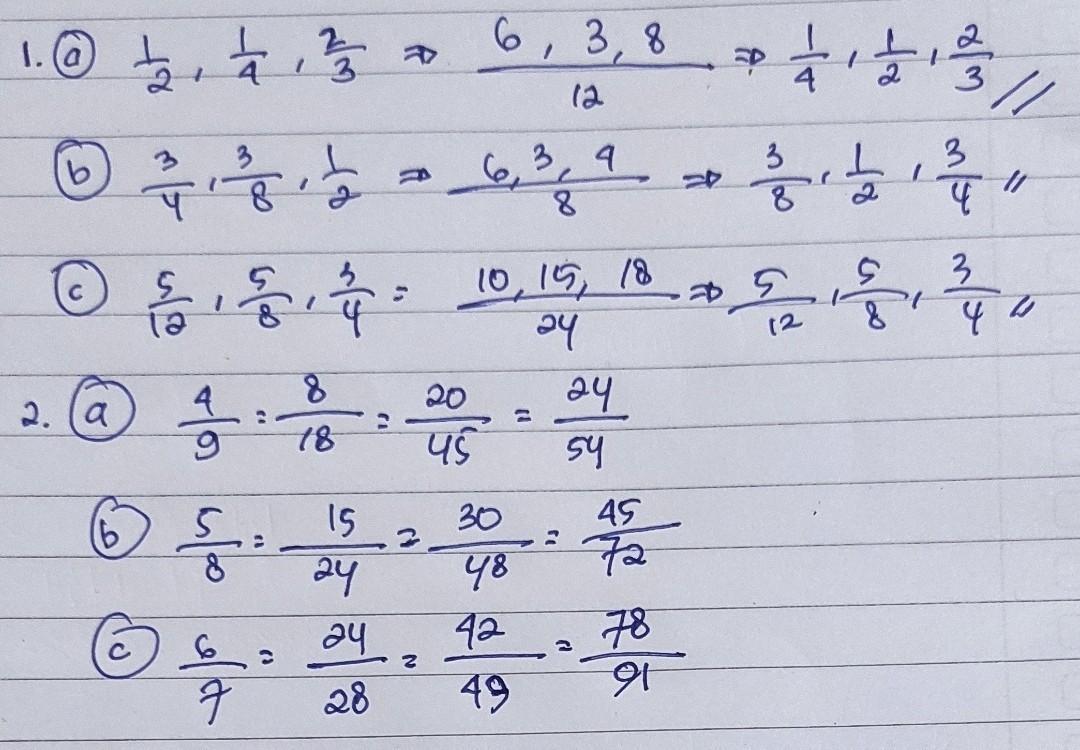 1. ⓐ 1/2, 1/4, 2/3 ⇒ 6, 3, 8/12 ⇒ 1/4, 1/2, 2/3 //
ⓑ 3/4, 3/8, 1/2 ⇒ 6, 3, 4/8 ⇒ 3/8, 1/2, 3/4 //
ⓒ 5/12, 5/8, 3/4 = 10, 15, 18/24 ⇒ 5/12, 5/8, 3/4 //
2. ⓐ 4/9 = 8/18 = 20/45 = 24/54
ⓑ 5/8 = 15/24 = 30/48 = 45/72
ⓒ 6/7 = 24/28 = 42/49 = 78/91